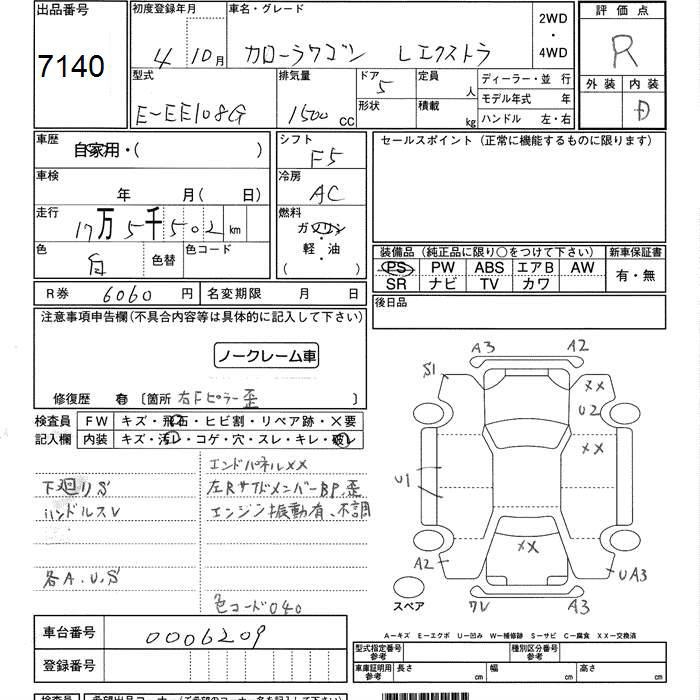 出品番号
7140
初度登録年月
4 10月
車名・グレード
カローラワゴン Lエクストラ
2WD
・
4WD
評価点
R
外装 内装
D
型式
E-EE108G
排気量
1500 cc
ドア
5
形状
定員
人
積載
kg
ディーラー・並 行
モデル年式 年
ハンドル 左・右
車歴
自家用・( )
車検
年 月( 日)
走行
17万5千502km
色
白
色替
色コード
シフト
F5
冷房
AC
燃料
ガソリン
・
軽・油
( )
セールスポイント (正常に機能するものに限ります)
装備品 (純正品に限り○をつけて下さい)
PS PW ABS エアB AW
SR ナビ TV カワ
新車保証書
有・無
R券 6060 円
名変期限 月 日
後日品
注意事項申告欄(不具合内容等は具体的に記入して下さい)
ノークレーム車
修復歴 有 〔箇所 右Fピラー歪 〕
検査員
記入欄
FW キズ・飛石・ヒビ割・リペア跡・X要
内装 キズ・汚れ・コゲ・穴・スレ・キレ・破れ
エンドパネルXX
下廻りS
左RサイドメンバーBP,歪
ハンドルスレ
エンジン振動有、不調
各A.U.S
色コード040
車台番号
0006209
登録番号
A3
A2
S1
XX
U2
XX
U1
XX
A2
UA3
7V
A3
スペア
A-キズ E-エクボ U-凹み W-補修跡 S-サビ C-腐食 XX-交換済
型式指定番号
参考
種別区分番号
参考
車庫証明用
参考
長さ cm
幅 cm
高さ cm
検査員
希望出品コーナー (ご希望のコーナー名を記入して下さい)